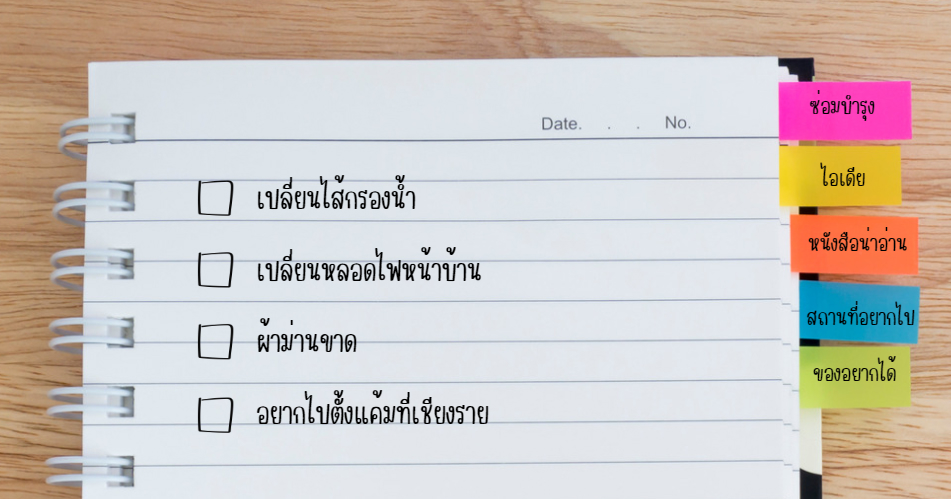 Date. . . No.
เปลี่ยนไส้กรองน้ำ
เปลี่ยนหลอดไฟหน้าบ้าน
ผ้าม่านขาด
อยากไปตั้งแค้มที่เชียงราย
ซ่อมบำรุง
ไอเดีย
หนังสือน่าอ่าน
สถานที่อยากไป
ของอยากได้